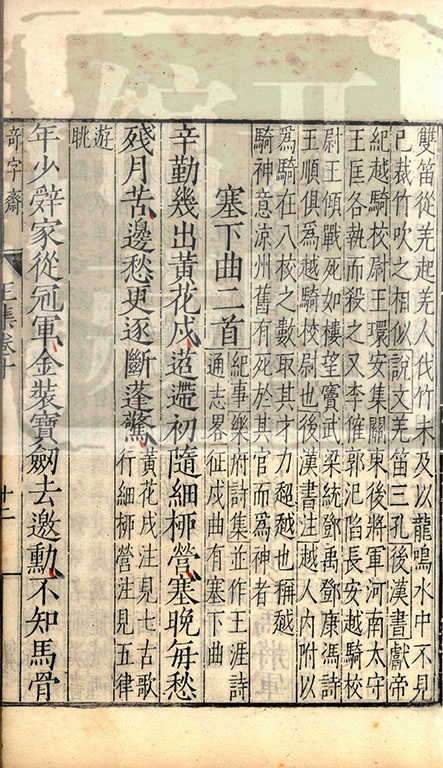 雙笛從羌起羌人伐竹未及以龍鳴水中不見
已裁竹吹之相似說文羌笛三孔後漢書獻帝
紀越騎校尉王環安集關東後將軍河南太守
王匡各執而殺之又李傕郭汜陷長安越騎校
尉王傾戰死如樓望竇武梁統鄧禹鄧康馮詩
王順俱爲越騎校尉也後漢書注越人内附以
爲騎在八校之數取其才力超越也稱越
騎神意凉州舊有死於其官而爲神者
塞下曲二首
紀事樂府詩集並作王涯詩
通志畧征戍曲有塞下曲
辛勤幾出黃花戍迢遰初隨細栁營塞晚每愁
殘月苦邊愁更逐斷蓬驚
黃花戍注見七古歌
行細栁營注見五律
遊
眺
年少辭家從冠軍金裝寶劒去邀勲不知馬骨
奇字齋
王集卷十
十二